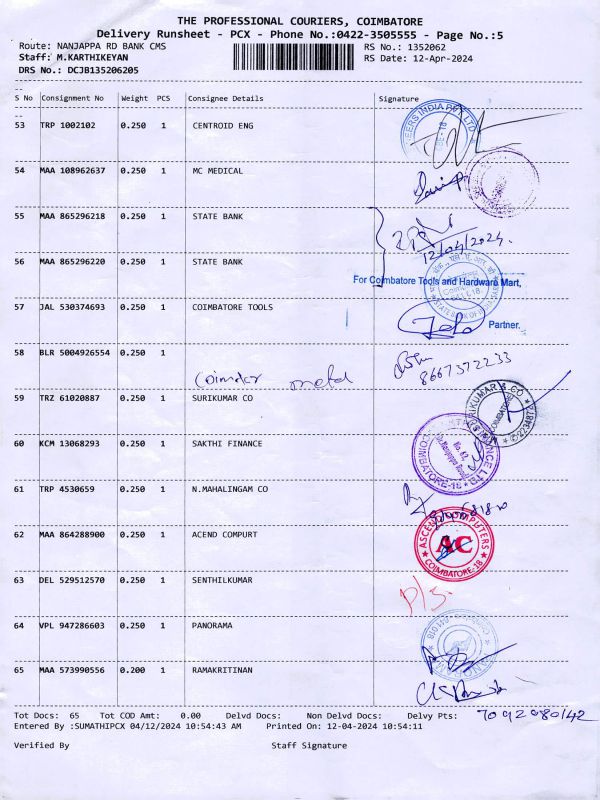 THE PROFESSIONAL COURIERS, COIMBATORE
Delivery Runsheet - PCX - Phone No.:0422-3505555 - Page No.:5
Route: NANJAPPA RD BANK CMS RS No.: 1352062
Staff: M.KARTHIKEYAN RS Date: 12-Apr-2024
DRS No.: DCJB135206205
S No Consignment No Weight PCS Consignee Details Signature
53 TRP 1002102 0.250 1 CENTROID ENG
54 MAA 108962637 0.250 1 MC MEDICAL
55 MAA 865296218 0.250 1 STATE BANK
12/04/2024.
56 MAA 865296220 0.250 1 STATE BANK
For Coimbatore Tools and Hardware Mart,
57 JAL 530374693 0.250 1 COIMBATORE TOOLS
Partner.
58 BLR 5004926554 0.250 1
metal 8667372233
59 TRZ 61020887 0.250 1 SURIKUMAR CO
60 KCM 13068293 0.250 1 SAKTHI FINANCE
COIMBATORE-18
61 TRP 4530659 0.250 1 N.MAHALINGAM CO
62 MAA 864288900 0.250 1 ACEND COMPURT
ASCEND COMPUTERS
AC
COIMBATORE-18
63 DEL 529512570 0.250 1 SENTHILKUMAR
64 VPL 947286603 0.250 1 PANORAMA
65 MAA 573990556 0.200 1 RAMAKRITINAN
Tot Docs: 65 Tot COD Amt: 0.00 Delvd Docs: Non Delvd Docs: Delvy Pts: 7092080142
Entered By :SUMATHIPCX 04/12/2024 10:54:43 AM Printed On: 12-04-2024 10:54:11
Verified By Staff Signature